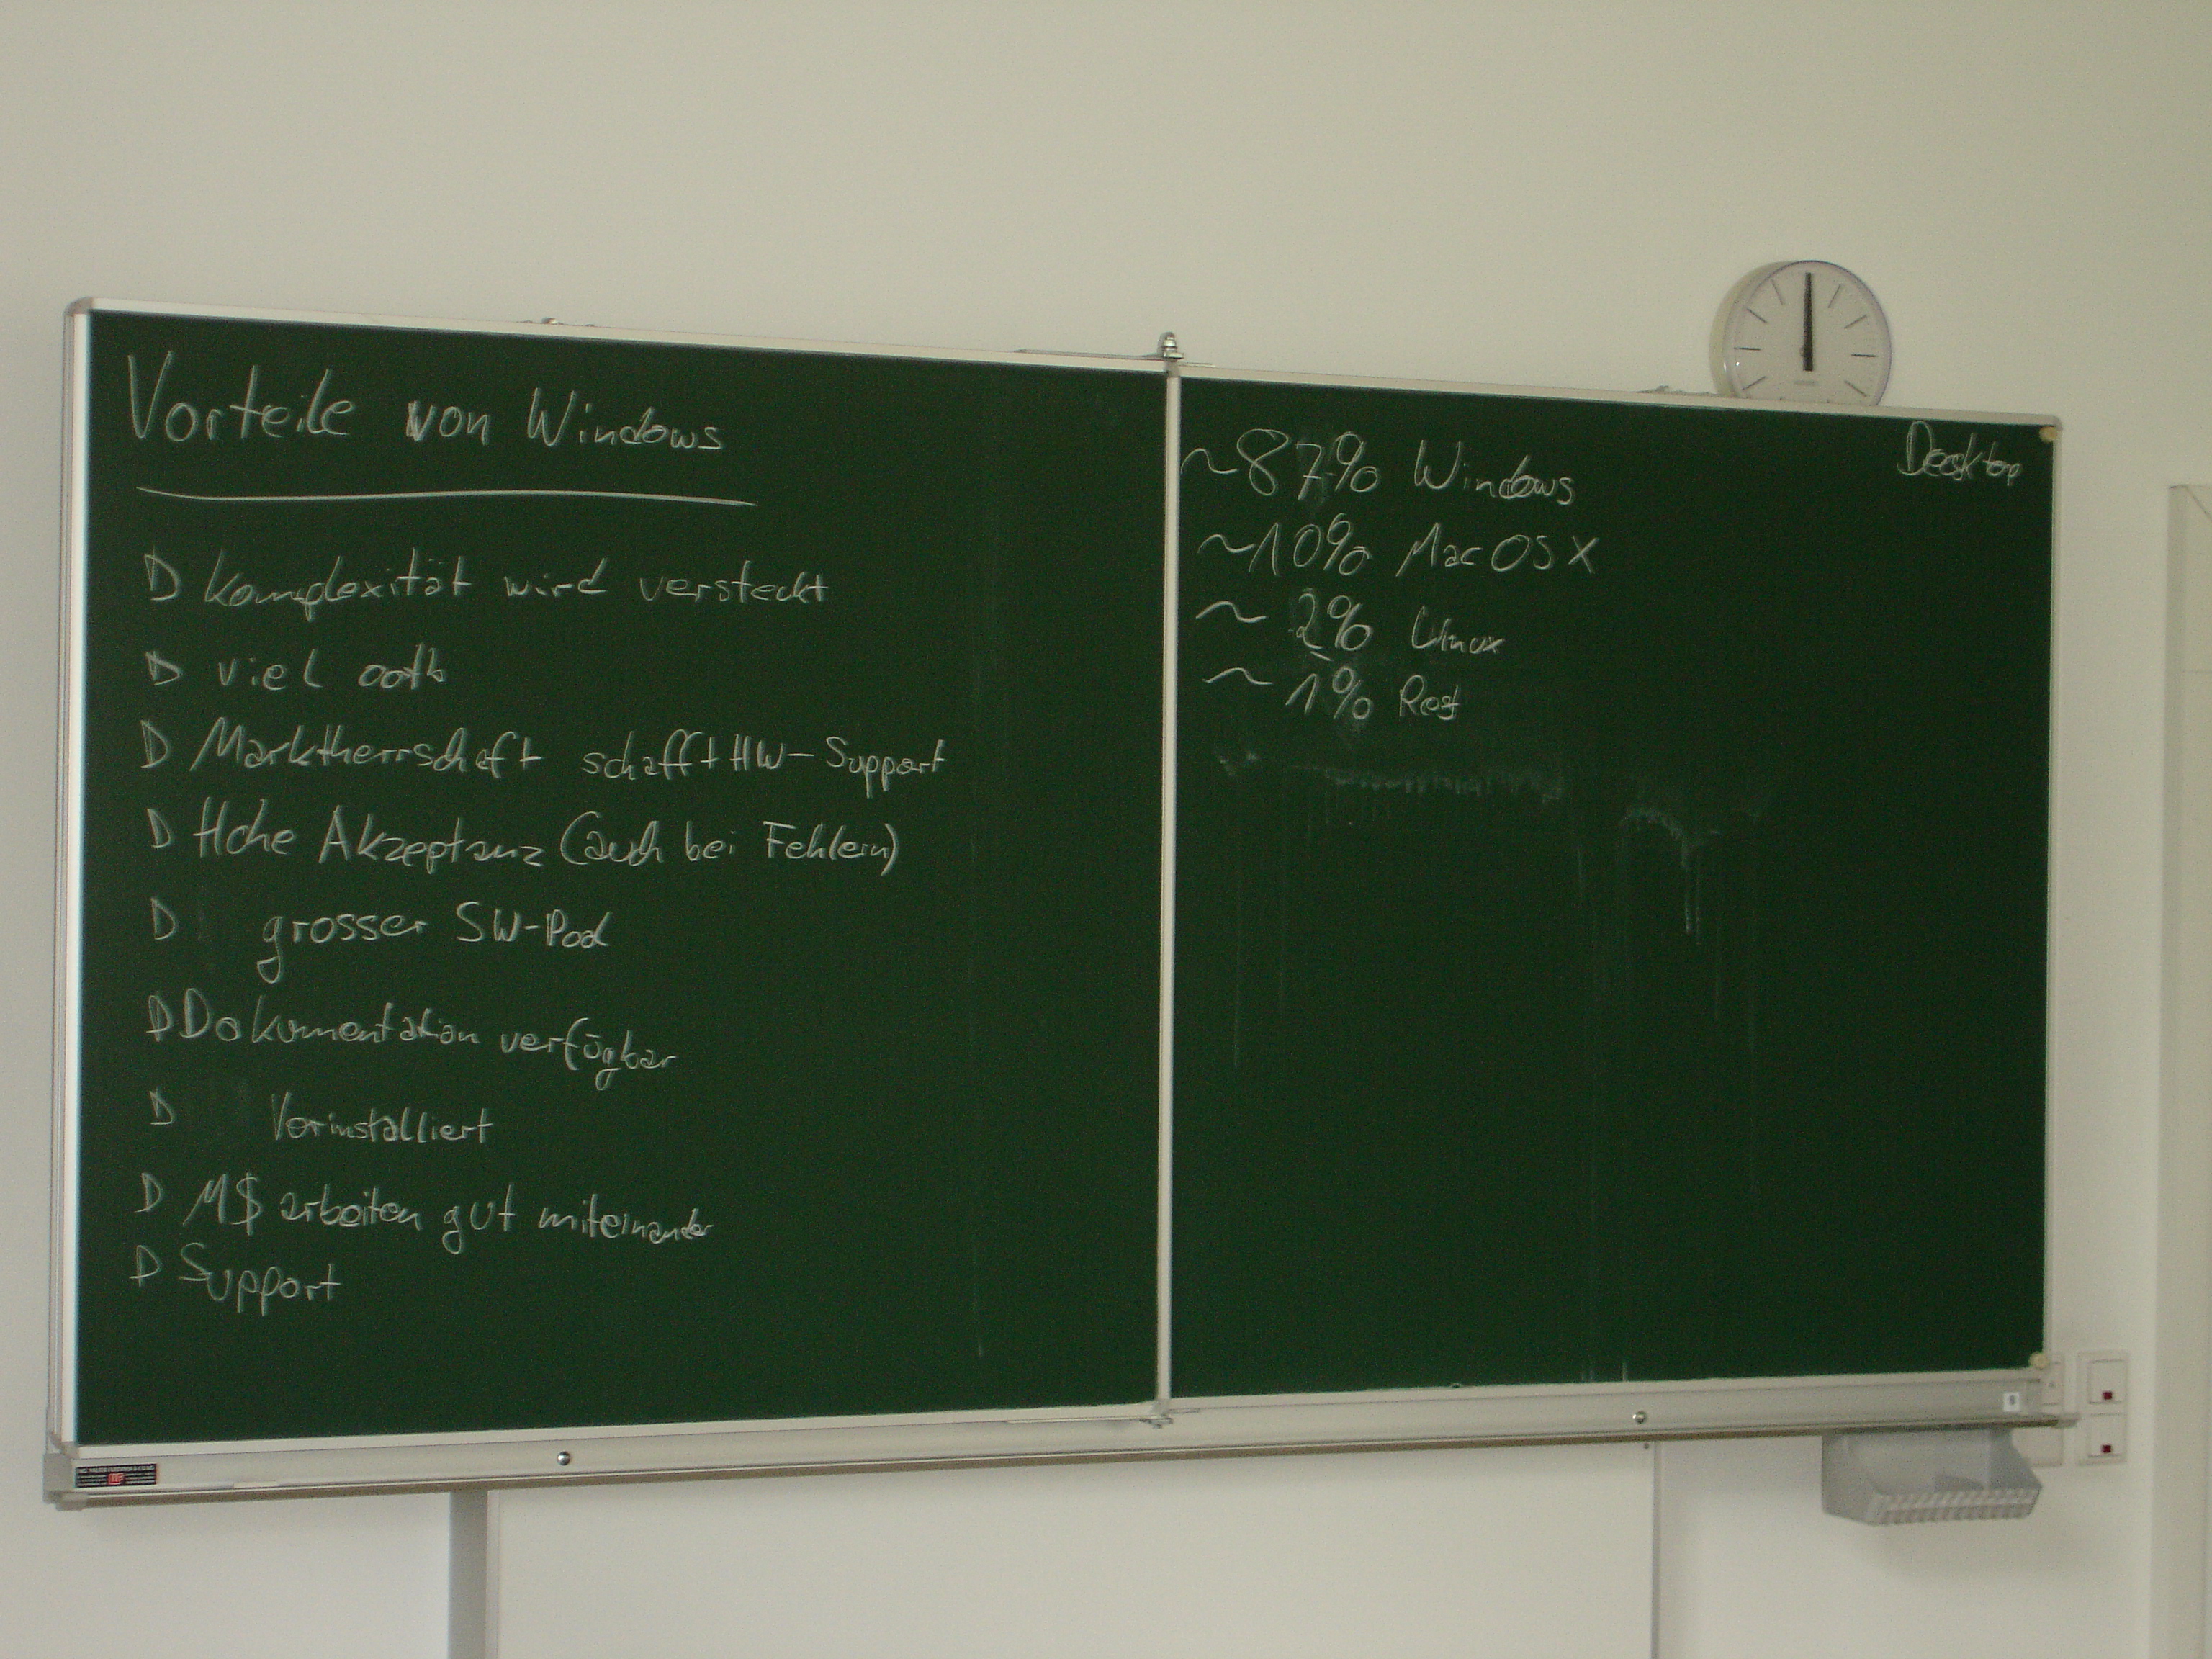 Vorteile von Windows
D Komplexität wird versteckt
D viel ootb
D Marktherrschaft schafft HW-Support
D Hohe Akzeptanz (auch bei Fehlern)
D grosser SW-Pool
D Dokumentation verfügbar
D Vorinstalliert
D M$ arbeiten gut miteinander
D Support
Desktop
~87% Windows
~10% Mac OS X
~ 2% Linux
~ 1% Rest